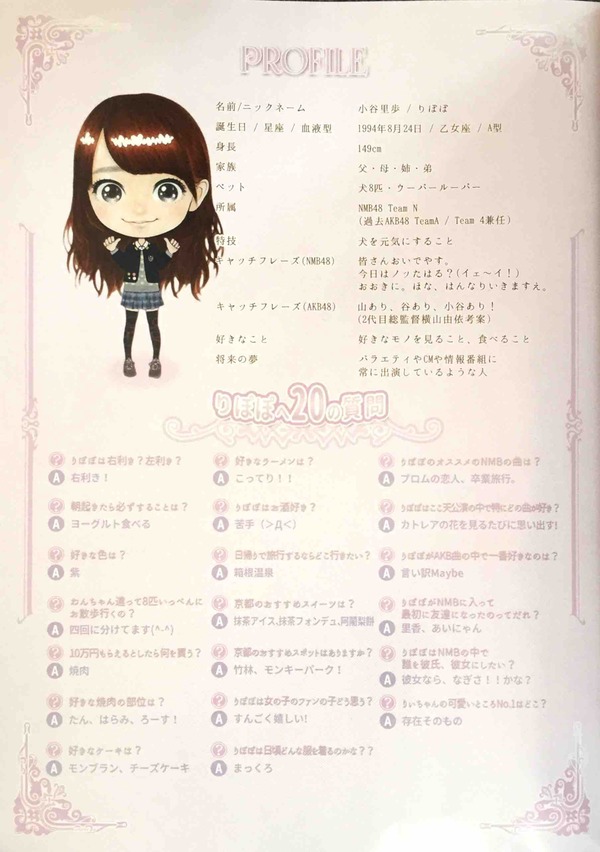 PROFILE
名前/ニックネーム 小谷里歩 / りぽぽ
誕生日 / 星座 / 血液型 1994年8月24日 / 乙女座 / A型
身長 149cm
家族 父・母・姉・弟
ペット 犬8匹・ウーパールーパー
所属 NMB48 Team N
(過去AKB48 TeamA / Team 4兼任)
特技 犬を元気にすること
キャッチフレーズ(NMB48) 皆さんおいでやす。
今日はノッたはる?(イェ～イ!)
おおきに。はな、はんなりいきますえ。
キャッチフレーズ(AKB48) 山あり、谷あり、小谷あり!
(2代目総監督横山由依考案)
好きなこと 好きなモノを見ること、食べること
将来の夢 バラエティやCMや情報番組に
常に出演しているような人
りぽぽへ20の質問
? りぽぽは右利き?左利き?
A 右利き!
? 朝起きたら必ずすることは?
A ヨーグルト食べる
? 好きな色は?
A 紫
? わんちゃん達って8匹いっぺんに
お散歩行くの?
A 四回に分けてます(^-^)
? 10万円もらえるとしたら何を買う?
A 焼肉
? 好きな焼肉の部位は?
A たん、はらみ、ろーす!
? 好きなケーキは?
A モンブラン、チーズケーキ
? 好きなラーメンは?
A こってり!!
? りぽぽはお酒好き?
A 苦手(>Д<)
? 日帰りで旅行するならどこ行きたい?
A 箱根温泉
? 京都のおすすめスイーツは?
A 抹茶アイス、抹茶フォンデュ、阿闍梨餅
? 京都のおすすめスポットはありますか?
A 竹林、モンキーパーク!
? りぽぽは女の子のファンの子どう思う?
A すんごく嬉しい!
? りぽぽは日頃どんな服を着るのかな??
A まっくろ
? りぽぽのオススメのNMBの曲は?
A プロムの恋人、卒業旅行。
? りぽぽはここ天公演の中で特にどの曲が好き?
A カトレアの花を見るたびに思い出す!
? りぽぽがAKB曲の中で一番好きなのは?
A 言い訳Maybe
? りぽぽがNMBに入って
最初に友達になったのってだれ?
A 里香、あいにゃん
? りぽぽはNMBの中で
誰を彼氏、彼女にしたい?
A 彼女なら、なぎさ!!かな?
? りぃちゃんの可愛いところNo.1はどこ?
A 存在そのもの